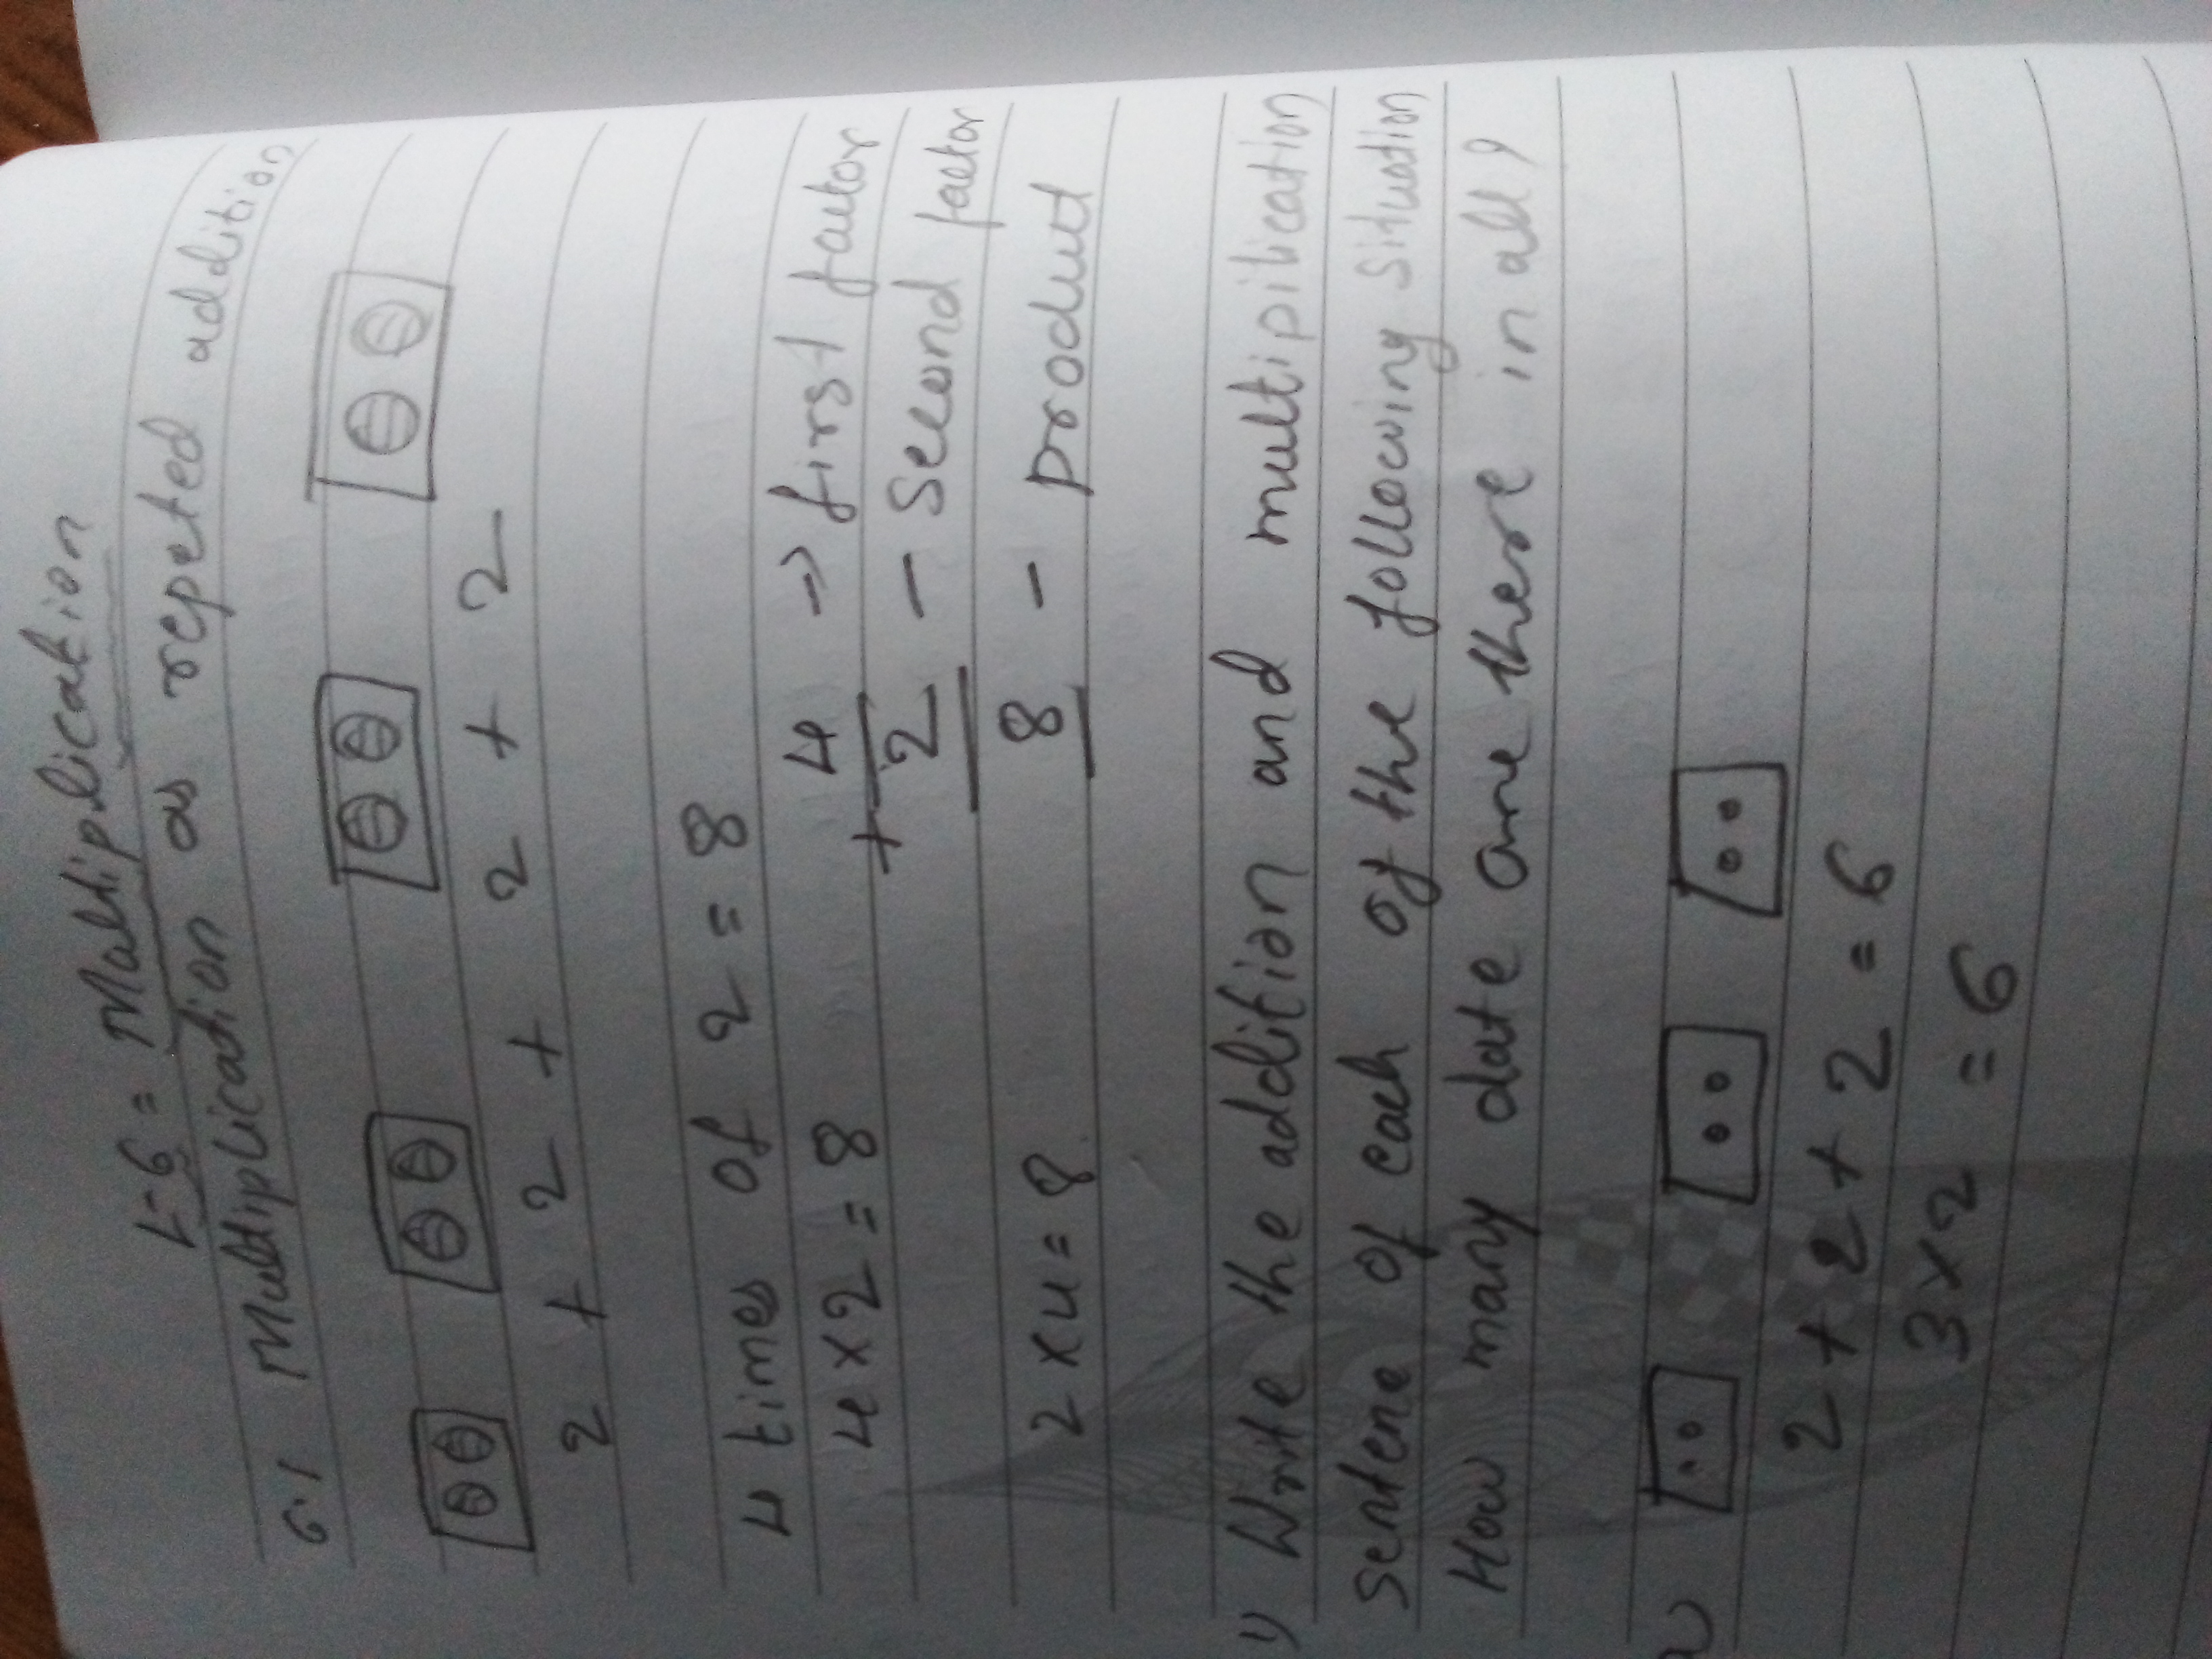 L-6 = Multiplication
6.1 Multiplication as repeted addition
2 + 2 + 2 + 2
4 times of 2 = 8
4 x 2 = 8 4 → first factor
+ 2 - Second factor
2 x 4 = 8 8 - product
1) Write the addition and multipilication
sentene of each of the following situation
How many date are there in all?
2 + 2 + 2 = 6
3 x 2 = 6